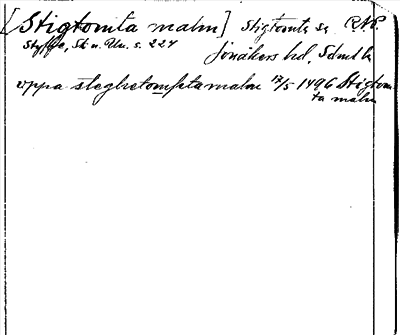 [Stigtomta malm] Stigtomta sn RNP.
Styffe, Sk. u. Un. s. 224
Jönåkers hd, Södml l.
vppa steghetomptamalm 17/5 1496 Stigtom
ta malm